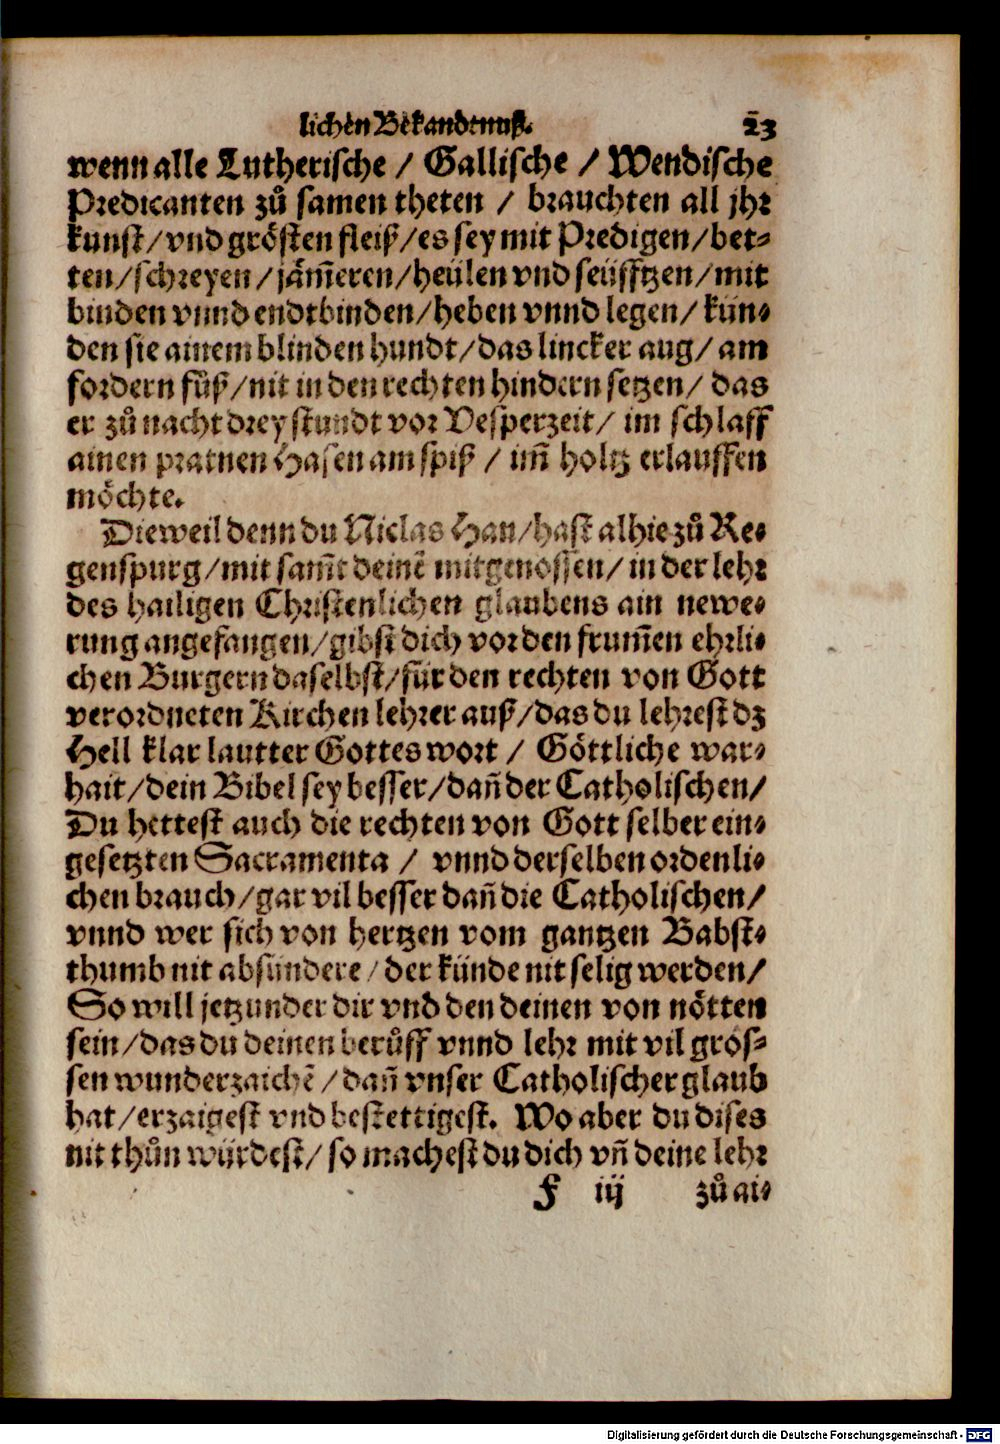 lichen Bekandtnuß. 23
wenn alle Lutherische / Gallische / Wendische
Predicanten zů samen theten / brauchten all jhr
kunst/vnd grösten fleiß/es sey mit Predigen/bet-
ten/schreyen/jäm̃eren/heülen vnd seüfftzen/mit
binden vnnd endtbinden/heben vnnd legen/ kün-
den sie ainem blinden hundt/das lincker aug/ am
fordern fůß/nit in den rechten hindern setzen/ das
er zů nacht drey stundt vor Vesperzeit/ im schlaff
ainen pratnen Hasen am spiß / im̃ holtz erlauffen
möchte.
Dieweil denn du Niclas Han/hast alhie zů Re-
genspurg/mit sam̃t deinē mitgenossen/in der lehr
des hailigen Christenlichen glaubens ain newe-
rung angefangen/gibst dich vor den frum̃en ehrli-
chen Burgern daselbst/für den rechten von Gott
verordneten Kirchen lehrer auß/das du lehrest dz
Hell klar lautter Gottes wort / Göttliche war-
hait/dein Bibel sey besser/dañ der Catholischen/
Du hettest auch die rechten von Gott selber ein-
gesetzten Sacramenta / vnnd derselben ordenli-
chen brauch/gar vil besser dañ die Catholischen/
vnnd wer sich von hertzen vom gantzen Babst-
thumb nit absündere/der künde nit selig werden/
So will jetzunder dir vnd den deinen von nötten
sein/das du deinen berůff vnnd lehr mit vil grös-
sen wunderzaichē/dañ vnser Catholischer glaub
hat/erzaigest vnd bestettigest. Wo aber du dises
nit thůn würdest/ so machest du dich vñ deine lehr
F iij zů ai-
Digitalisierung gefördert durch die Deutsche Forschungsgemeinschaft - DFG